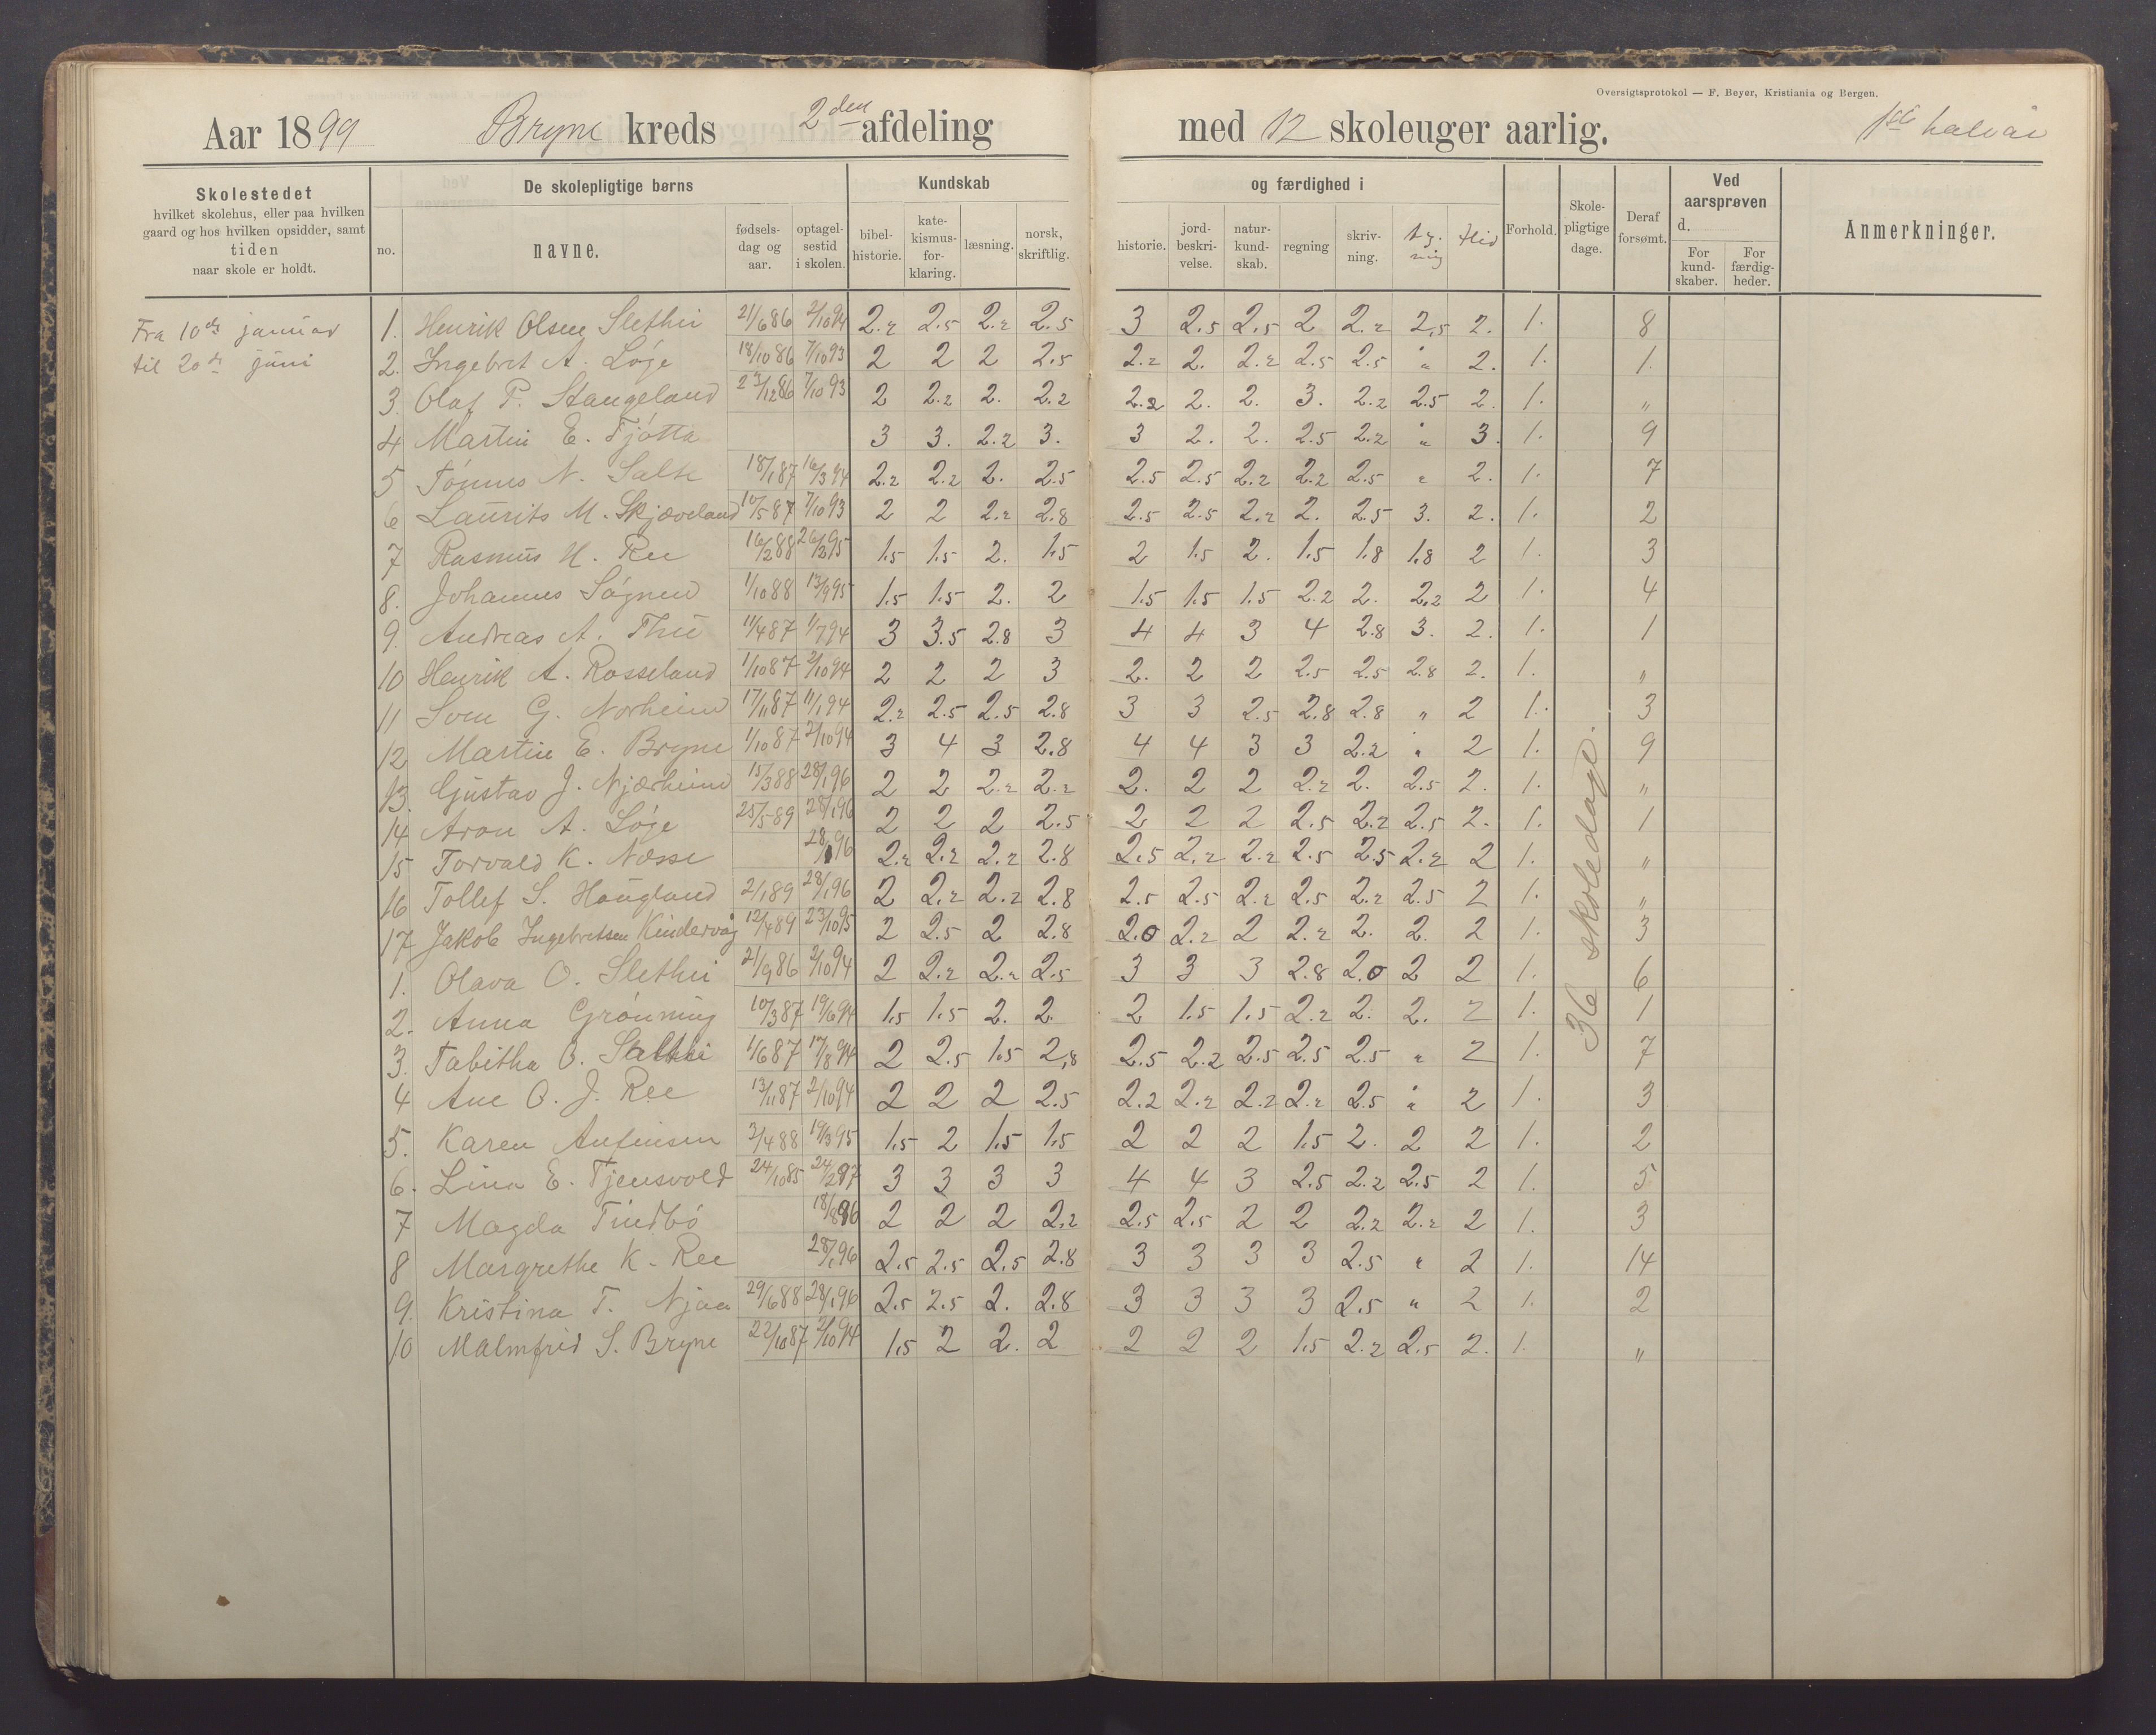 Oversigtsprotokol — F. Beyer, Kristiania og Bergen.
Aar 1899 Bryne kreds 2den afdeling med 12 skoleuger aarlig. 1ste halvår
Skolestedet hvilket skolehus, eller paa hvilken gaard og hos hvilken opsidder, samt tiden naar skole er holdt.
De skolepligtige børns
no. navne. fødselsdag og aar. optagelsestid i skolen.
Kundskab og færdighed i
bibelhistorie. katekismusforklaring. læsning. norsk, skriftlig. historie. jordbeskrivelse. naturkundskab. regning skrivning. flid
Forhold. Skolepligtige dage. Deraf forsømt.
Ved aarsprøven d. For kundskaber. For færdigheder.
Anmerkninger.
Fra 10de januar
til 20de juni
36 skoledage.
1. Henrik Olsen Slethei 21/6 86 2/10 94 2.2 2.5 2.2 2.5 3 2.5 2.5 2 2.2 2.5 2. 1. 8
2. Ingebret A. Løge 18/10 86 7/10 93 2 2 2 2.5 2.2 2. 2.2 2.5 2.5 " 2. 1. 1.
3. Olaf P. Stangeland 27/12 86 7/10 93 2 2.2 2. 2.2 2.2 2. 2. 3. 2.2 2.5 2. 1. "
4 Martin E. Tjøtta 3 3. 2.2 3. 3 2. 2. 2.5 2.2 " 3. 1. 9
5 Tønnes N. Salte 18/1 87 16/3 94 2.2 2.2 2. 2.5 2.5 2.5 2.2 2.2 2.5 " 2. 1. 7
6 Laurits M. Skjæveland 10/5 87 7/10 93 2 2 2.2 2.8 2.5 2.5 2.2 2. 2.5 3. 2. 1. 2
7 Rasmus H. Ree 16/2 88 26/2 95 1.5 1.5 2. 1.5 2 1.5 2. 1.5 1.8 1.8 2 1. 3
8. Johannes Søgnen 1/10 88 13/9 95 1.5 1.5 2. 2 1.5 1.5 1.5 2.2 2. 2.2 2 1. 4
9. Andreas A. Thu 11/4 87 1/7 94 3 3.5 2.8 3 4 4 3 4 2.8 3. 2. 1. 1
10 Henrik A. Rosseland 1/10 87 2/10 94 2 2 2 3 2. 2 2 2.5 2.5 2.8 2. 1. "
11 Sven G. Norheim 17/11 87 11/1 94 2.2 2.5 2.5 2.8 3 3 2.5 2.8 2.8 " 2 1. 3
12 Martin E. Bryne 1/10 87 2/10 94 3 4 3 2.8 4 4 3 3 2.2 " 2 1. 9
13. Gustav J. Njærheim 15/3 88 28/1 96 2 2 2.2 2.2 2. 2 2 2.2 2. 2.5 2. 1. "
14 Aron A. Løge 25/5 89 28/1 96 2 2 2 2.5 2 2 2 2.5 2.2 2.5 2. 1. 1
15 Torvald K. Næsse 28/1 96 2.2 2.2 2.2 2.8 2.5 2.2 2.2 2.5 2.5 2.2 2 1. "
16 Tollef S. Haugland 2/1 89 28/1 96 2 2.2 2.2 2.8 2.5 2.5 2.2 2.5 2.2 2.5 2 1. "
17 Jakob Ingebretsen Kindervåg 12/4 89 23/10 95 2 2.5 2 2.8 2.0 2.2 2 2.2 2. 2. 2 1. 3
1. Olava O. Slethei 21/9 86 2/10 94 2 2.2 2.2 2.5 3 3 3 2.8 2.0 2 2 1. 6
2. Anna Grønning 10/3 87 19/6 94 1.5 1.5 2. 2. 2 1.5 1.5 2.2 2. 2. 2 1. 1
3. Tabitha O. 1/6 87 17/8 94 2 2.5 1.5 2,8 2.5 2.2 2.5 2.5 2.5 " 2 1. 7
4 Ane O. J. Ree 13/11 87 2/10 94 2 2 2 2.5 2.2 2.2 2.2 2.2 2.5 " 2 1. 3
5. Karen Anfinsen 3/4 88 19/3 95 1.5 2 1.5 1.5 2 2 2 1.5 2. 2 2 1. 2
6. Lina E. Tjensvold 24/10 85 24/2 97 3 3 3 3 4 4 3 2.5 2.2 2.5 2 1. 5
7 Magda Tindbø 18/8 96 2 2 2 2.2 2.5 2.5 2 2 2.2 2.2 2 1. 3
8 Margrethe K. Ree 28/1 96 2.5 2.5 2.5 2.8 3 3 3 3 2.5 " 2 1. 14
9. Kristina T. Njaa 29/6 88 28/1 96 2.5 2.5 2. 2.8 3 3 3 3 2.5 " 2 1. 2
10 Malmfrid S. Bryne 22/10 87 2/10 94 1.5 2 2. 2 2 2 2 1.5 2.2 2.5 2. 1. "